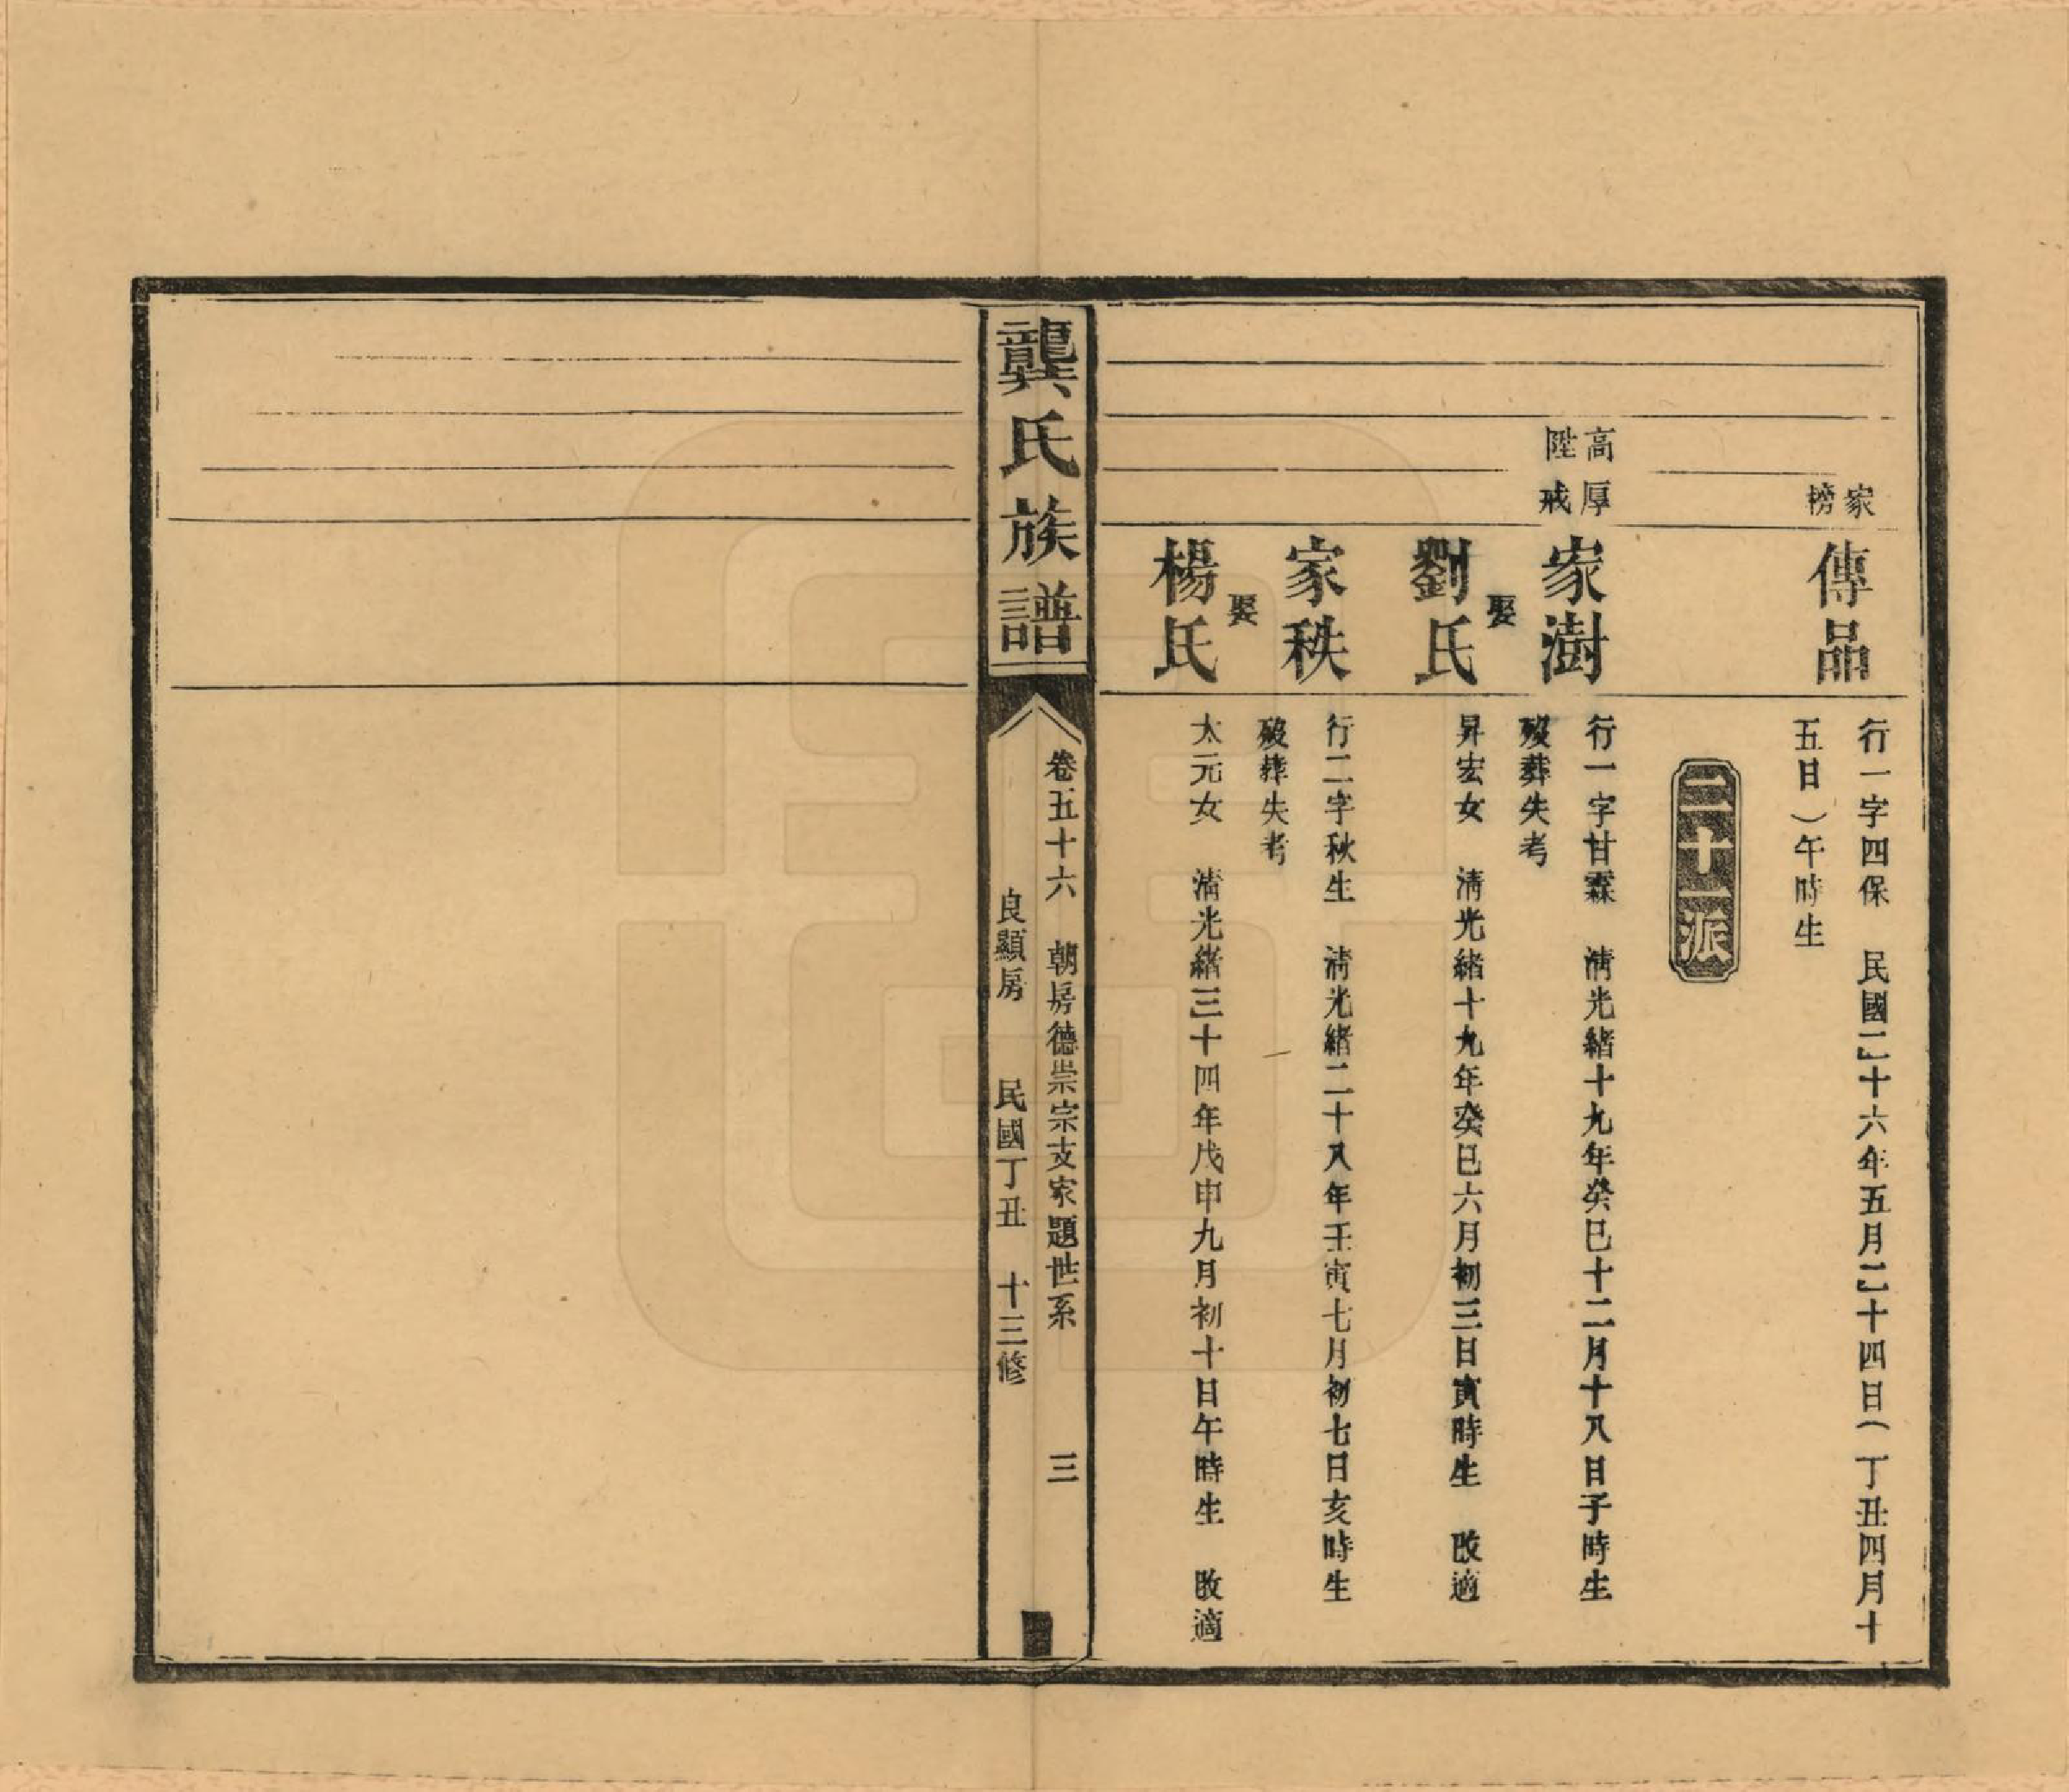 家榜
傳品
行一字四保　民國二十六年五月二十四日（丁丑四月十
五日）午時生
二十一派
高厚
陞戒
家澍
行一字甘霖　清光緒十九年癸巳十二月十八日子時生
歿葬失考
娶
劉氏
昇宏女　清光緒十九年癸巳六月初三日寅時生　改適
家秩
行二字秋生　清光緒二十八年壬寅七月初七日亥時生
歿葬失考
娶
楊氏
太元女　清光緒三十四年戊申九月初十日午時生　改適
龔氏族譜
卷五十六　朝房德崇宗支家題世系　三
良顯房　民國丁丑　十三修